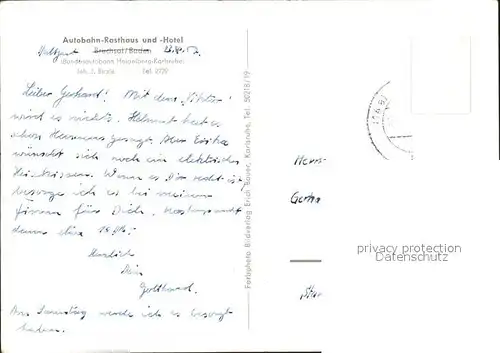 Autobahn-Rasthaus und -Hotel
Stuttgart Bruchsal/Baden
(Bundesautobahn Heidelberg-Karlsruhe)
Inh. Tel.
Lieber Gerhard! Mit dem
wird es nichts. Helmut hat es
schon Hermann gesagt. Aber Erika
wünscht sich noch ein elektrisches
Heizkissen. Wenn es Dir recht ist,
besorge ich es bei meiner
Firma für Dich.
dann etwa
Herzlich
Dein
Gotthard.
Am Samstag werde ich es besorgt
haben.
Farbphoto Bildverlag Erich Bauer, Karlsruhe, Tel. 50218/19
Herrn
Gerha
privacy protection
Datenschutz